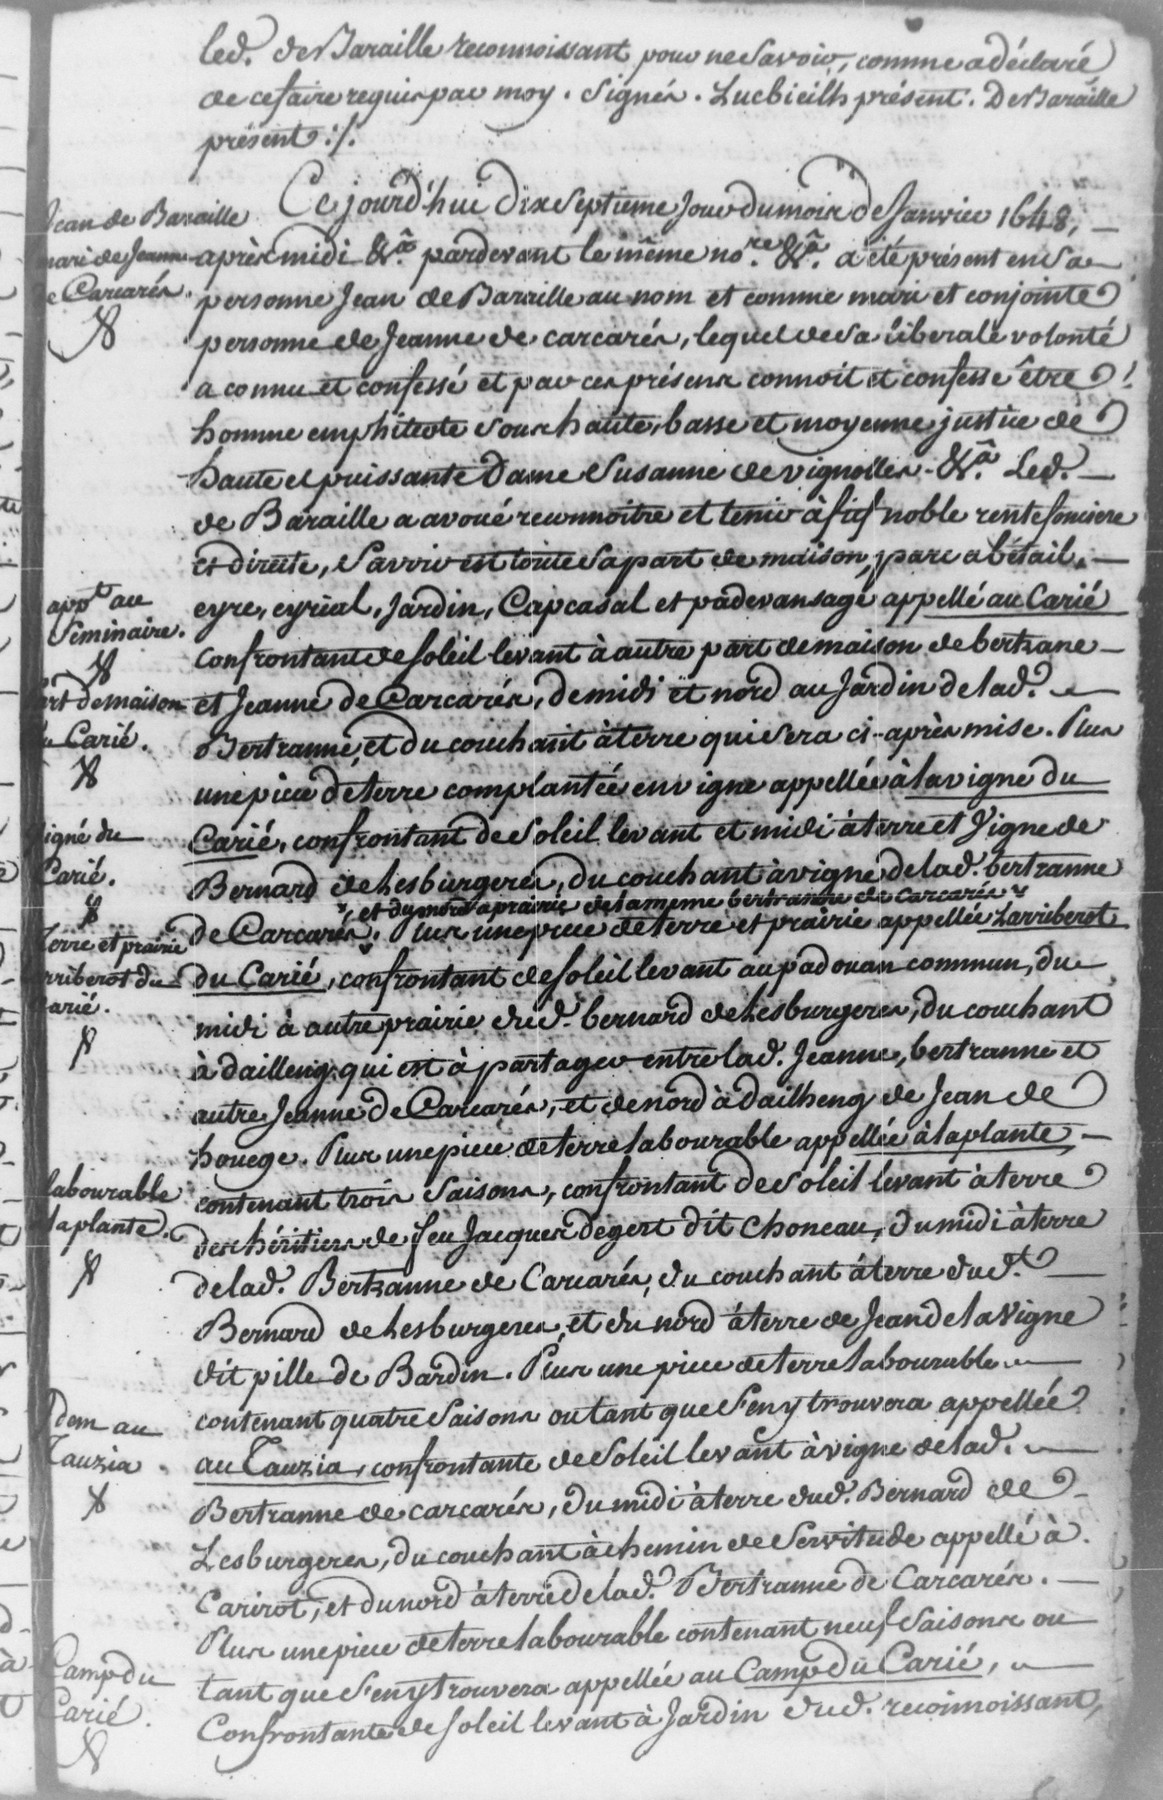 led. de Baraille reconnoissant pour ne savoir, comme a déclaré
de ce faire requis par moy. Signés. Lucbieilh présent. De Baraille
présent ./.
Jean de Baraille
mari de Jeanne
de Carcarés.
Ce jourd'hui dix septieme jour du mois de Janvier 1648,
après midi &a. pardevant le même nore. &a. a été présent en sa
personne Jean de Baraille au nom et comme mari et conjointe
personne de Jeanne de Carcarés, lequel de sa liberale volonté
a connu et confessé et par ces présens connoit et confesse être
homme emphiteote sous haute, basse et moyenne justice de
haute et puissante Dame Susanne de vignolles - &a. Led.
de Baraille a avoué reconnoitre et tenir à fief noble rente fonciere
et directe, savoir est toute sa part de maison, parc a bétail,
appt. au
Séminaire.
part de maison
au Carié.
eyre, eyrial, Jardin, Capcasal et padevansage appellé au Carié
confrontant de soleil levant à autre part de maison de bertrane
et Jeanne de Carcarés, de midi et nord au Jardin de lad.
Bertranne, et du couchant à terre qui sera ci-après mise. Plus
une piece de terre complantée en vigne appellée à la vigne du
vigne du
Carié.
Carié, confrontant de soleil levant et midi à terre et vigne de
Bernard de Lesburgeres, du couchant à vigne de lad. bertranne
, et du nord a prairie de la meme bertranne de Carcarés
Terre et prairie
Larriberot du
Carié.
de Carcarés. Plus une piece de terre et prairie appellée Larriberot
du Carié, confrontant de soleil levant au padouan commun, du
midi à autre prairie dud. bernard de Lesburgeres, du couchant
à dailleng qui est à partager entre lad. Jeanne, bertranne et
autre Jeanne de Carcarés, et de nord à dailheng de Jean de
houege. Plus une piece de terre labourable appellée à la plante
labourable
à la plante.
contenant trois saisons, confrontant de soleil levant à terre
des héritiers de feu Jacques degert dit Choneau, du midi à terre
de lad. Bertranne de Carcarés, du couchant à terre dud.
Bernard de Lesburgeres, et du nord à terre de Jean de la Vigne
dit pille de Bardin. Plus une piece de terre labourable
Idem au
Tauzia.
contenant quatre saisons ou tant que s'en y trouvera appellée
au Tauzia, confrontante de soleil levant à vigne de lad.
Bertranne de carcarés, du midi à terre dud. Bernard de
Lesburgeres, du couchant à chemin de servitude appellé à
Carirot, et du nord à terre de lad. Bertranne de Carcarés.
Plus une piece de terre labourable contenant neuf saisons ou
Camp du
Carié.
tant que s'en y trouvera appellée au Camp du Carié,
Confrontante de soleil levant à Jardin dud. reconnoissant,